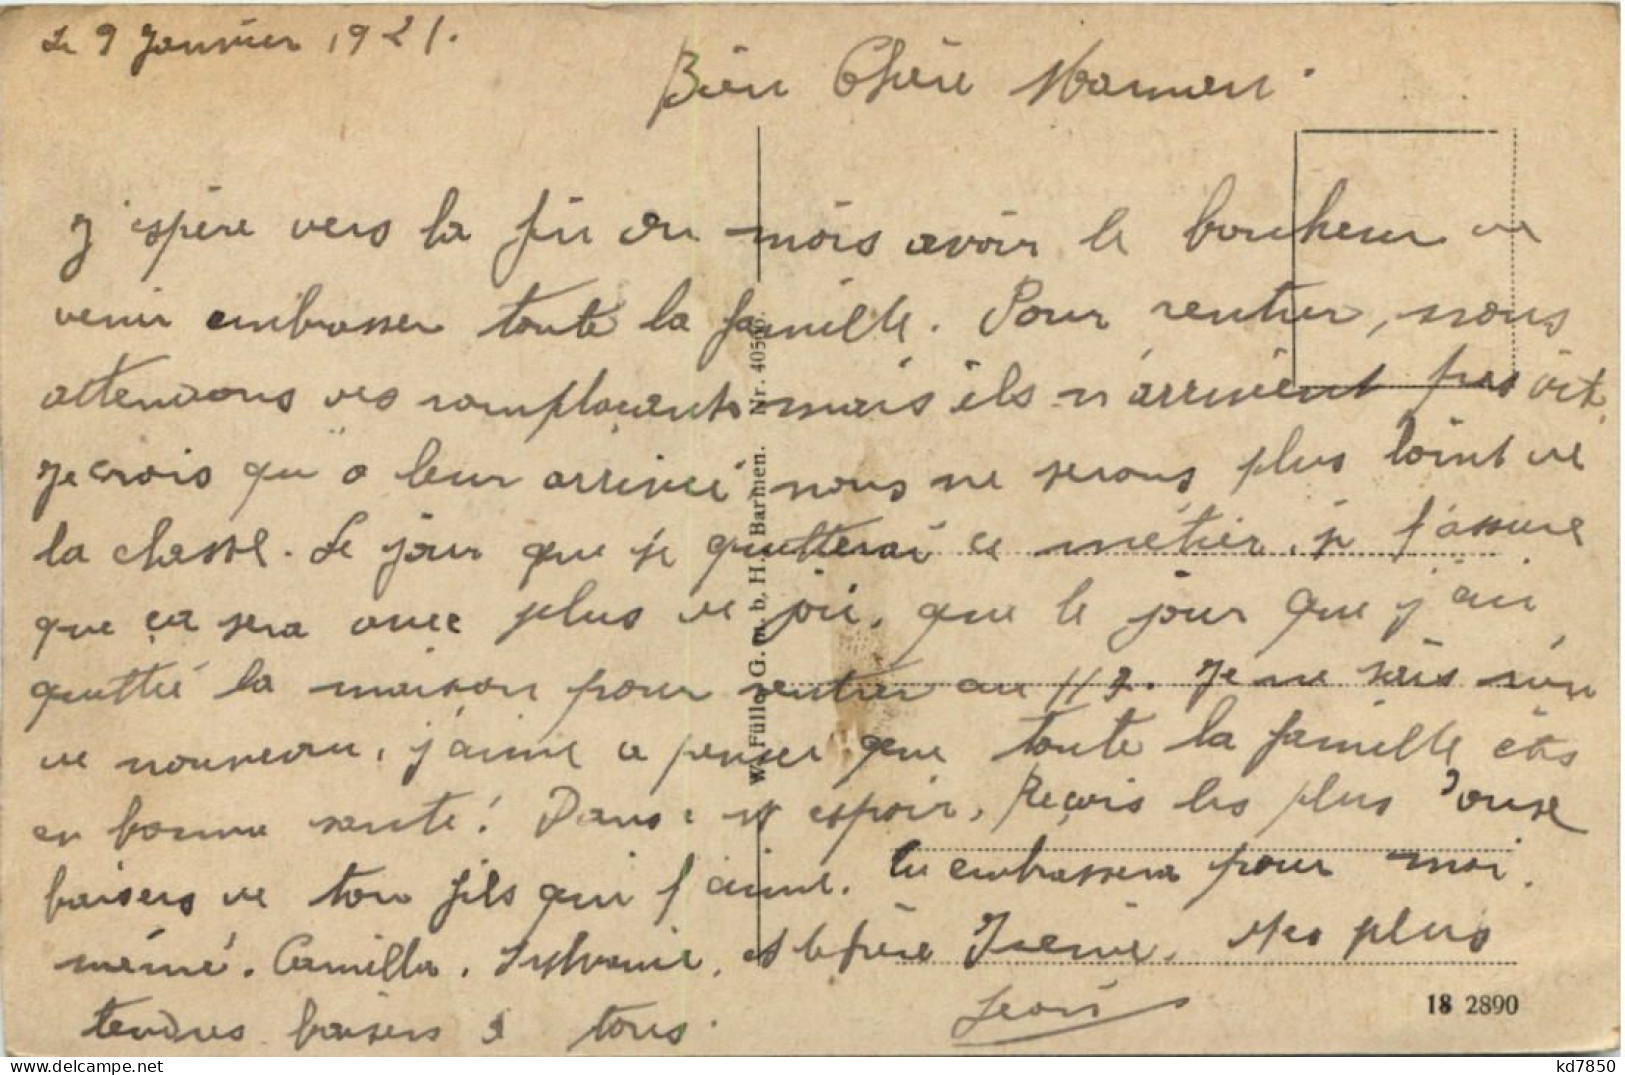 Le 9 Janvier 1921.
Bien Chère Maman.
J'espère vers la fin du mois avoir le bonheur de
venir embrasser toute la famille. Pour rentrer, nous
attendons des remplaçants mais ils n'arrivent pas vite.
Je crois qu'a leur arrivée nous ne serons plus loint de
la classe. Le jour que je quitterai ce métier, je t'assure
que ça sera avec plus de joie, que le jour que j'ai
quitté la maison pour rentrer au 112. Je ne sais rien
de nouveau, j'aime a penser que toute la famille êtes
en bonne santé! Dans cet espoir, Reçois les plus douse
baisers de ton fils qui t'aime. Tu embrassera pour moi.
mémé. Camilla. Sylvanie, et le frère Irénée. Mes plus
tendres baisers à tous.
W. Fülle G. m. b. H. Barmen. Nr. 4050
18 2890
kd7850